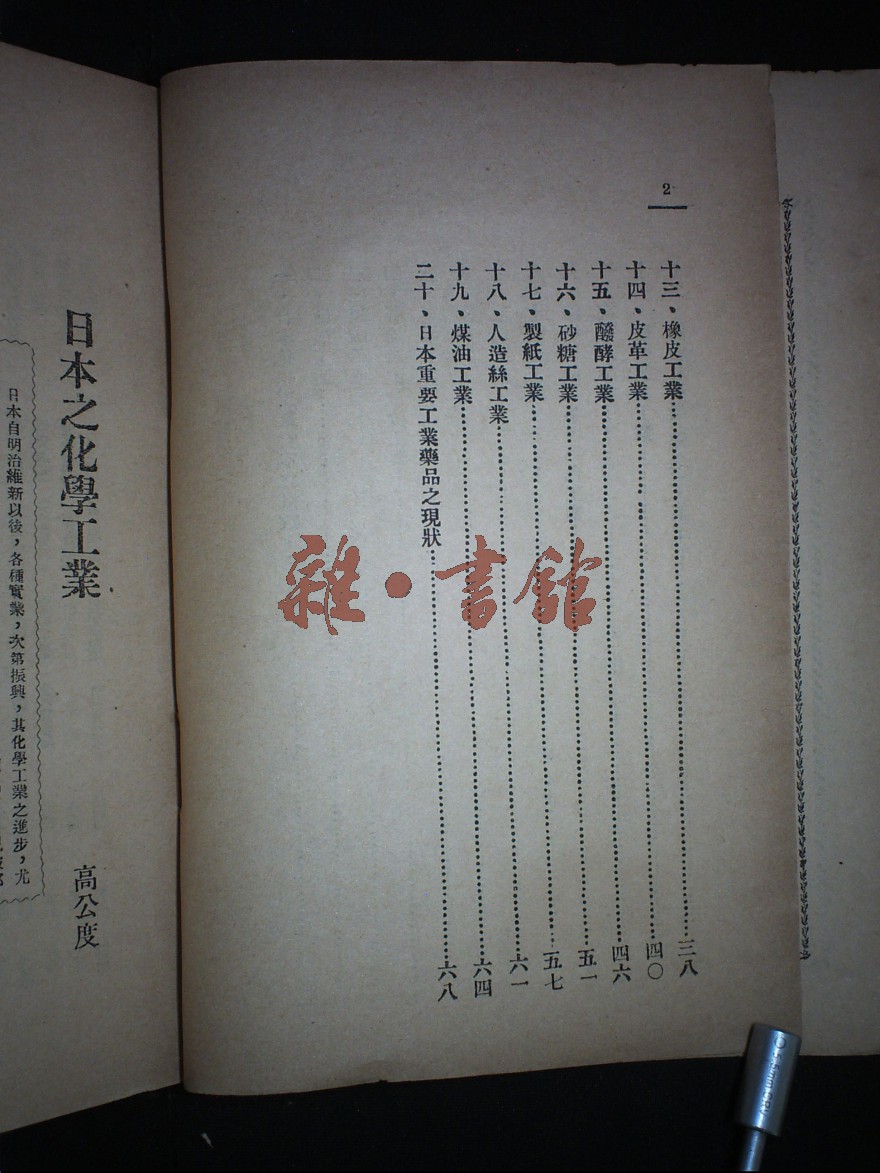 2
十三、橡皮工業……三八
十四、皮革工業……四〇
十五、醱酵工業……四六
十六、砂糖工業……五一
十七、製紙工業……五七
十八、人造絲工業……六一
十九、煤油工業……六四
二十、日本重要工業藥品之現狀……六八
雜·書館
日本之化學工業
高公度
日本自明治維新以後，各種實業，次第振興，其化學工業之進步，尤